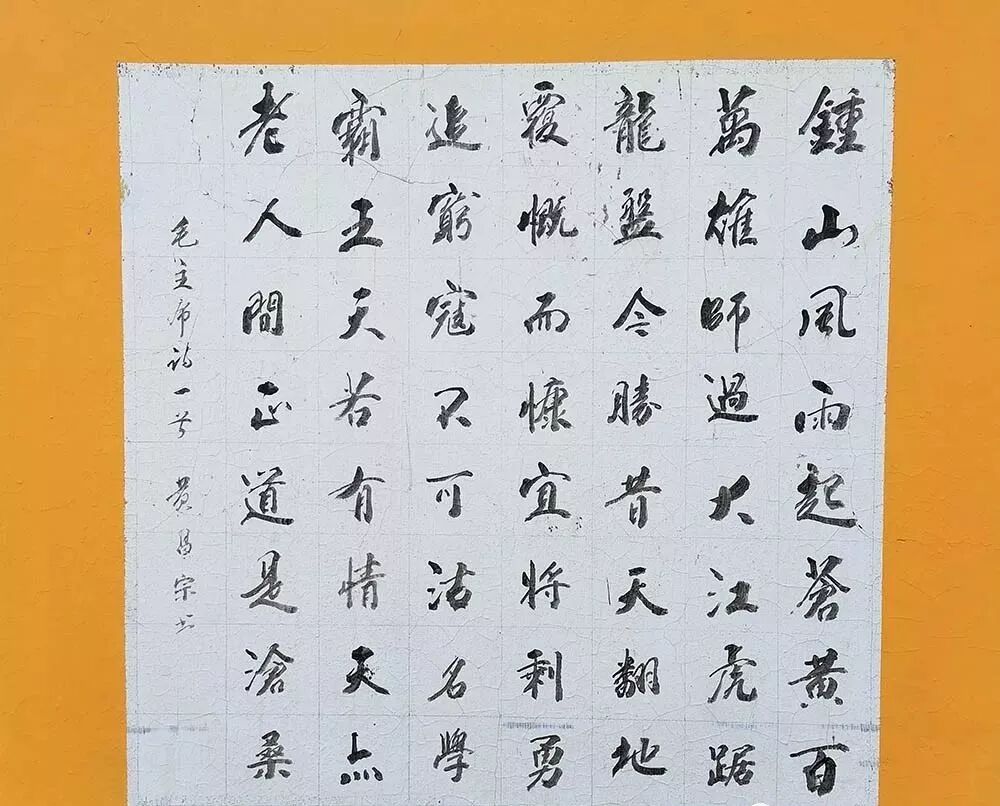 鍾山風雨起蒼黃百
萬雄師過大江虎踞
龍盤今勝昔天翻地
覆慨而慷宜將剩勇
追窮寇不可沽名學
霸王天若有情天亦
老人間正道是滄桑
毛主席诗一首 黄昌宗书